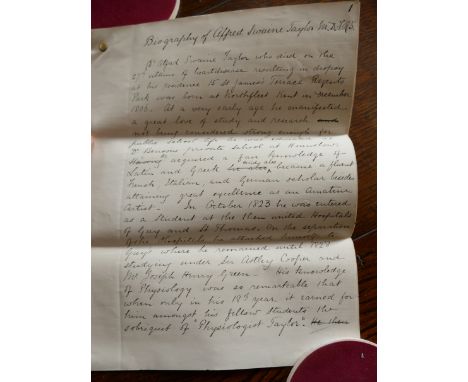 1
Biography of Alfred Swaine Taylor M.D. F.R.S.
Dr Alfred Swaine Taylor who died on the
27th ultimo of heart disease resulting in dropsy
at his residence 15 St James's Terrace Regents
Park was born at Northfleet Kent in December
1806. At a very early age he manifested
a great love of study and research and
not being considered strong enough for
public school life he was educated at
Dr Benson's private school at Hounslow
Having acquired a fair knowledge of
Latin and Greek he also and also became a fluent
French, Italian, and German scholar besides
attaining great excellence as an Amateur
Artist. In October 1823 he was entered
as a Student at the then united Hospitals
of Guy and St Thomas. On the separation
of the Hospitals he attached himself to
Guy's where he remained until 1828
studying under Sir Astley Cooper and
Mr Joseph Henry Green. His knowledge
of Physiology was so remarkable that
when only in his 19th year it earned for
him amongst his fellow students the
sobriquet of "Physiologist Taylor". He then